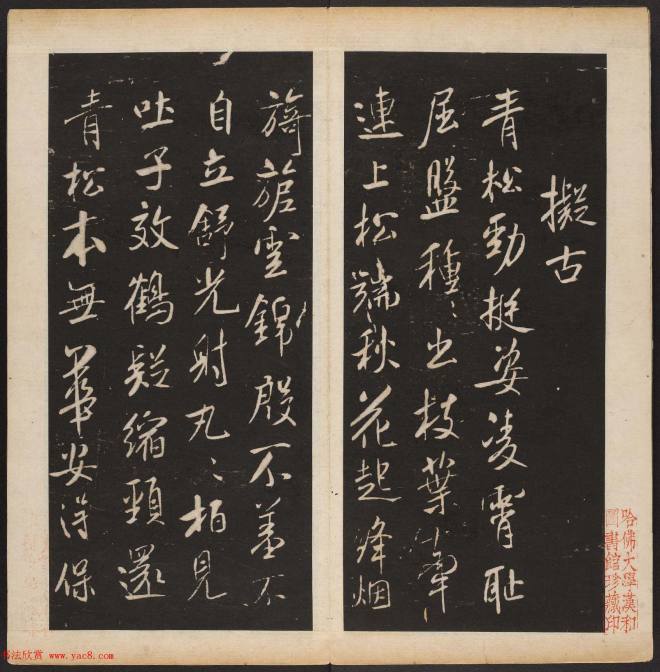 擬古
青松勁挺姿凌霄恥
屈盤種〻出枝葉牽
連上松端秋花起烽烟
旖旎雲錦殷不羞不
自立舒光射丸〻柏見
吐子效鶴疑縮頸還
青松本無華安得保
哈佛大學漢和
圖書館珍藏印
书法欣赏 www.yac8.com